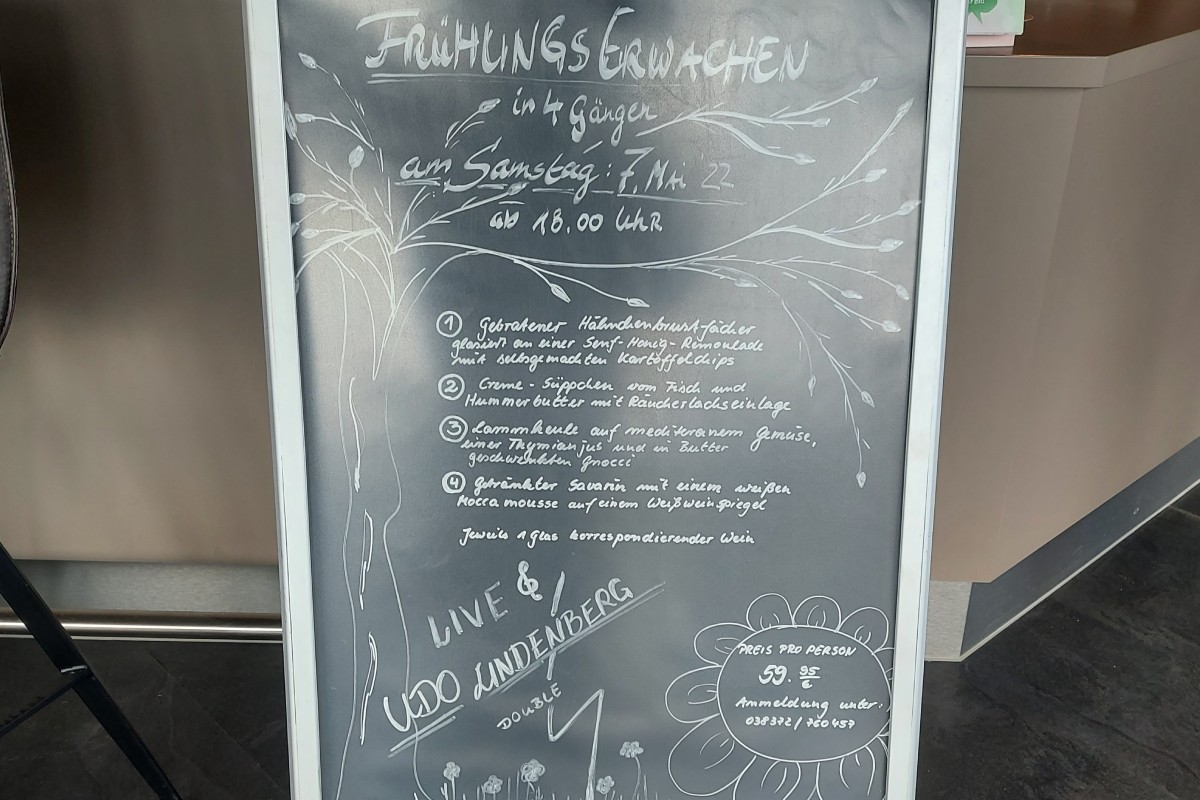 FRÜHLINGSERWACHEN
in 4 Gängen
am Samstag: 7. Mai 22
ab 18.00 Uhr
1 Gebratener Hähnchenbrustfächer
glasiert an einer Senf-Honig-Remoulade
mit selbsgemachten Kartoffelchips
2 Creme-Süppchen vom Fisch und
Hummerbutter mit Räucherlachseinlage
3 Lammkeule auf mediteranem Gemüse,
einer Thymianjus und in Butter
geschwenkten Gnocci
4 getränkter Savarin mit einem weißen
Mocca mousse auf einem Weißweinspiegel
Jeweils 1 Glas korrespondierender Wein
LIVE
UDO LINDENBERG
DOUBLE
PREIS PRO PERSON
59.95 €
Anmeldung unter:
038372/760457